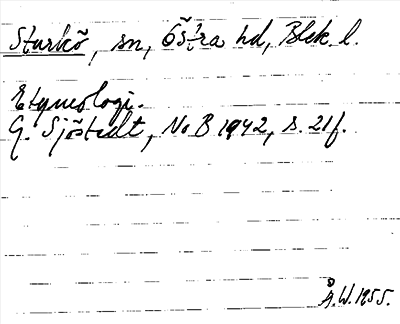 Sturkö, sn, Östra hd, Blek. l.
Etymologi.
G. Sjöstedt, NoB 1942, s. 21f.
Å.W. 1955.